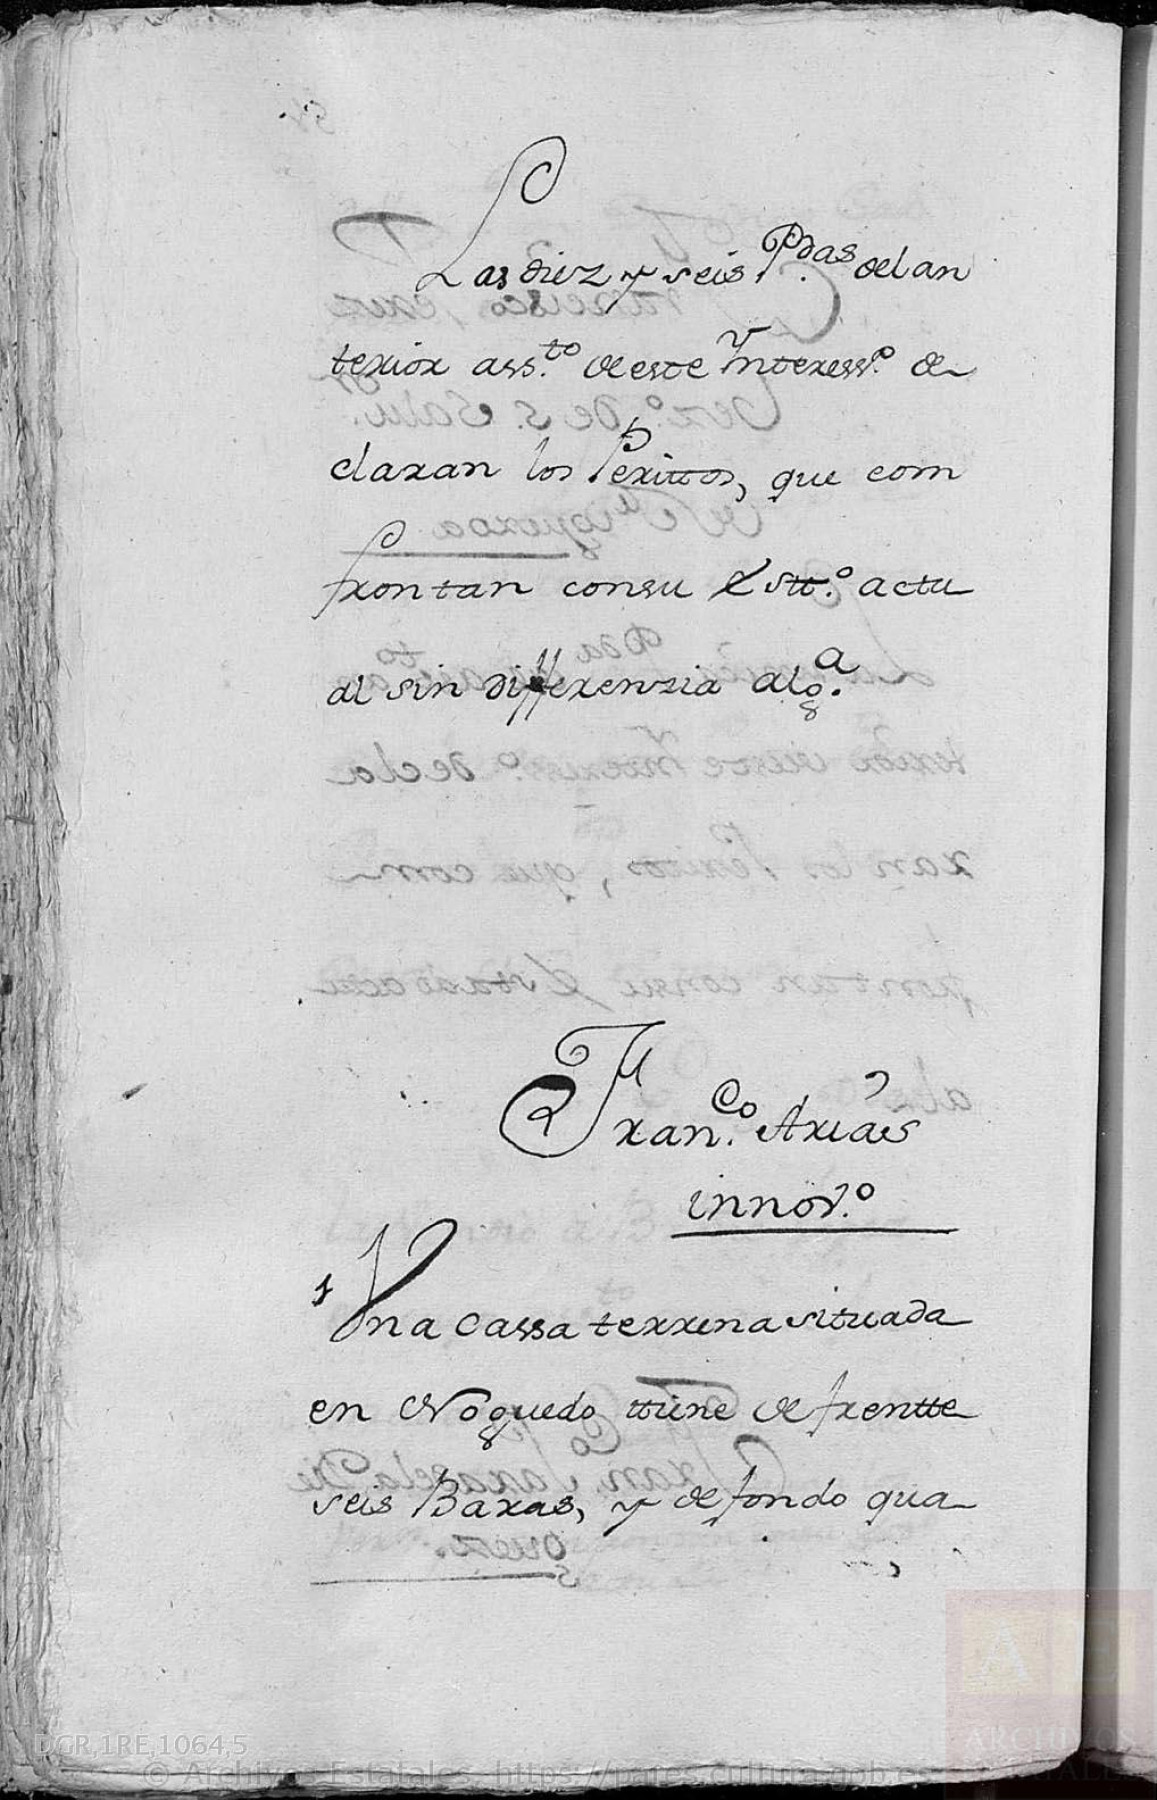 Las diez y seis Pdas. del an
terior ass.to de este Interess.º de
claran los Peritos, que com
frontan consu Estt.º actu
al sin differenzia alg.a
Fran.co Arias
innov.º
1 Una cassa terrena situada
en Noguedo ttiene de frentte
seis Baras, y de fondo qua
DGR,1RE,1064,5
© Archivos Estatales, https://pares.cultura.gob.es
AE
ARCHIVOS
ESTATALES